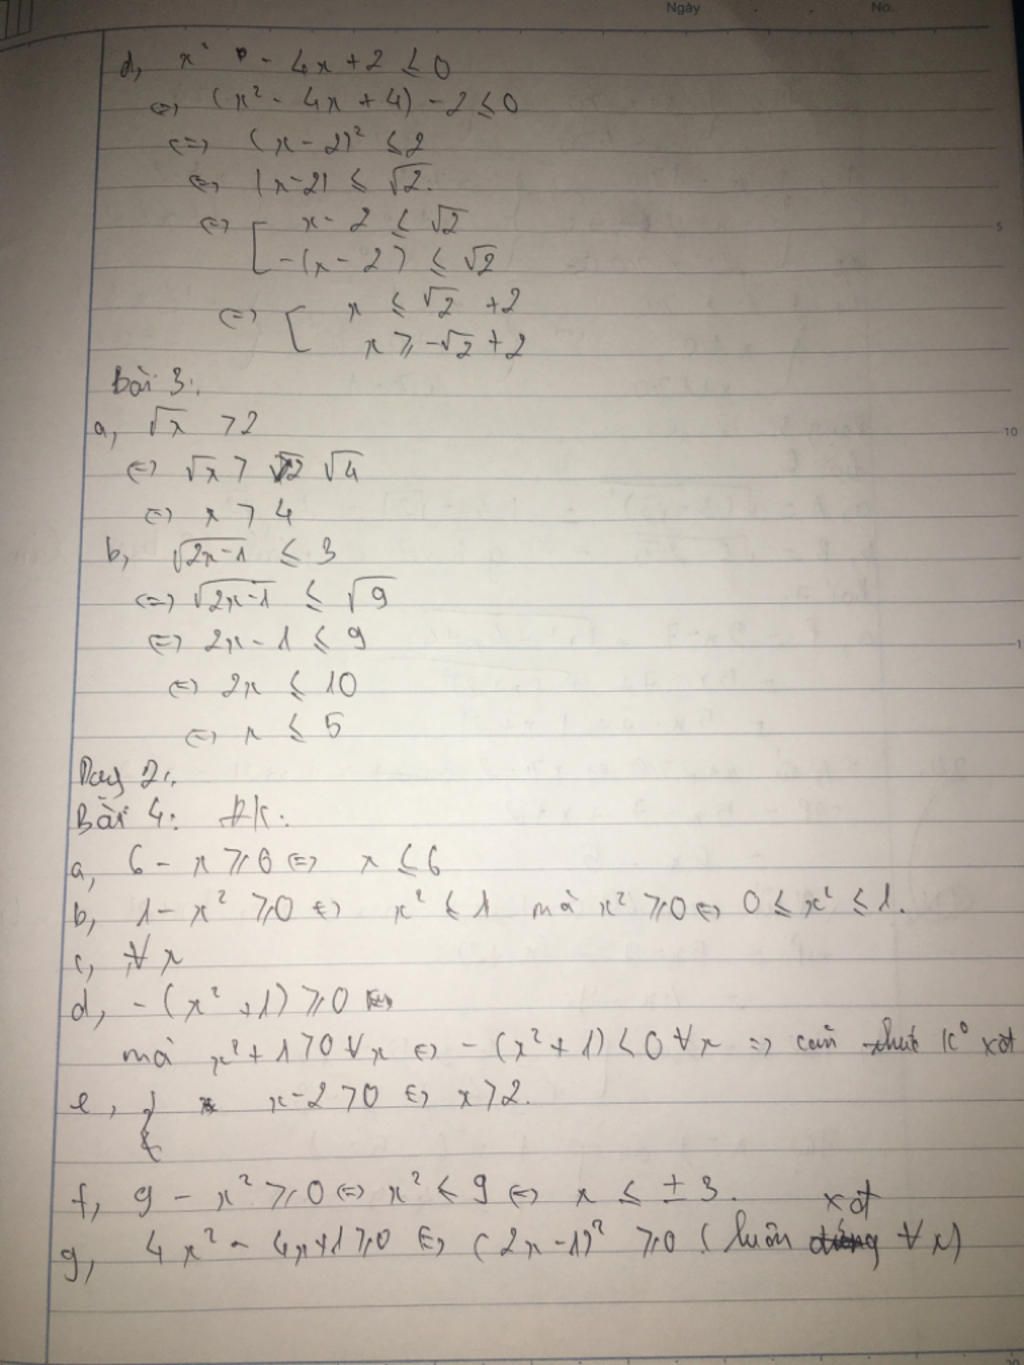 Ngày No.
d, x² - 4x + 2 ≤ 0
⇔ (x² - 4x + 4) - 2 ≤ 0
⇔ (x - 2)² ≤ 2
⇔ |x - 2| ≤ √2.
⇔ [ x - 2 ≤ √2
-(x - 2) ≤ √2
⇔ [ x ≤ √2 + 2
x ≥ -√2 + 2
Bài 3:
a, √x > 2
⇔ √x > √4
⇔ x > 4
b, √2x-1 ≤ 3
⇔ √2x-1 ≤ √9
⇔ 2x - 1 ≤ 9
⇔ 2x ≤ 10
⇔ x ≤ 5
Dạng 2:
Bài 4: ĐK:
a, 6 - x ≥ 0 ⇔ x ≤ 6
b, 1 - x² ≥ 0 ⇔ x² ≤ 1 mà x² ≥ 0 ⇔ 0 ≤ x² ≤ 1.
c, ∀x
d, -(x² + 1) ≥ 0 ⇔
mà x² + 1 > 0 ∀x ⇔ -(x² + 1) < 0 ∀x => căn thức k° xđ
e, { x - 2 > 0 ⇔ x > 2.
f, 9 - x² ≥ 0 ⇔ x² ≤ 9 ⇔ x ≤ ± 3.
g, 4x² - 4x + 1 ≥ 0 ⇔ (2x - 1)² ≥ 0 (luôn xđ ∀x)
5
10